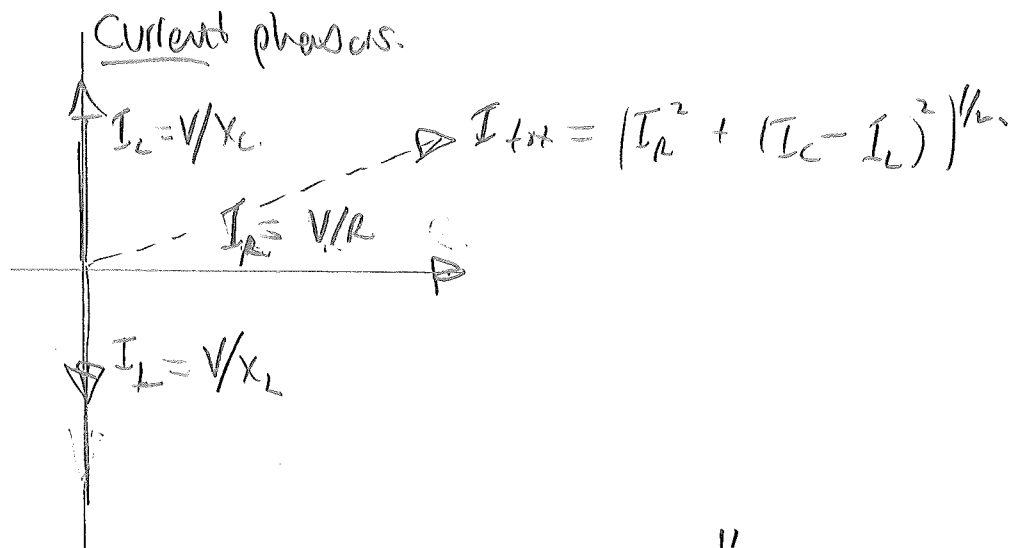 Current phasors.
I_C = V/X_C.
I_tot = (I_R^2 + (I_C - I_L)^2)^1/2.
I_R = V/R
I_L = V/X_L